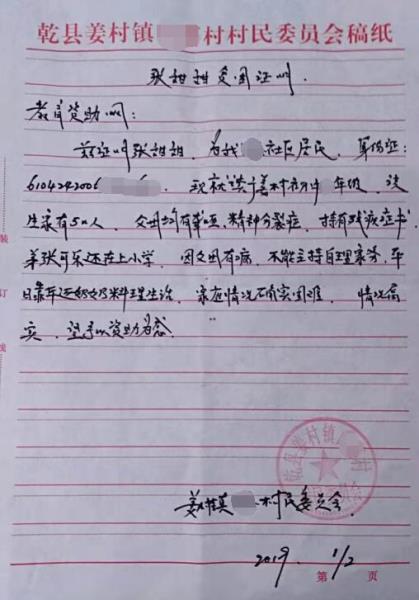 乾县姜村镇 村村民委员会稿纸
张甜甜贫困证明.
教育资助网:
兹证明张甜甜, 为我 社区居民, 身份证:
6104242006 现就读于姜村初中 年级, 该
生家有5口人, 父母均有 精神分裂症, 持有残疾证书,
弟张可乐还在上小学, 因父母有病, 不能主持自理家务, 平
日靠年迈奶奶料理生活, 家庭情况确实困难, 情况属
实, 望予以资助为感.
装
订
线
乾县姜村镇
姜村镇 村民委员会.
2019. 1/2
第 页